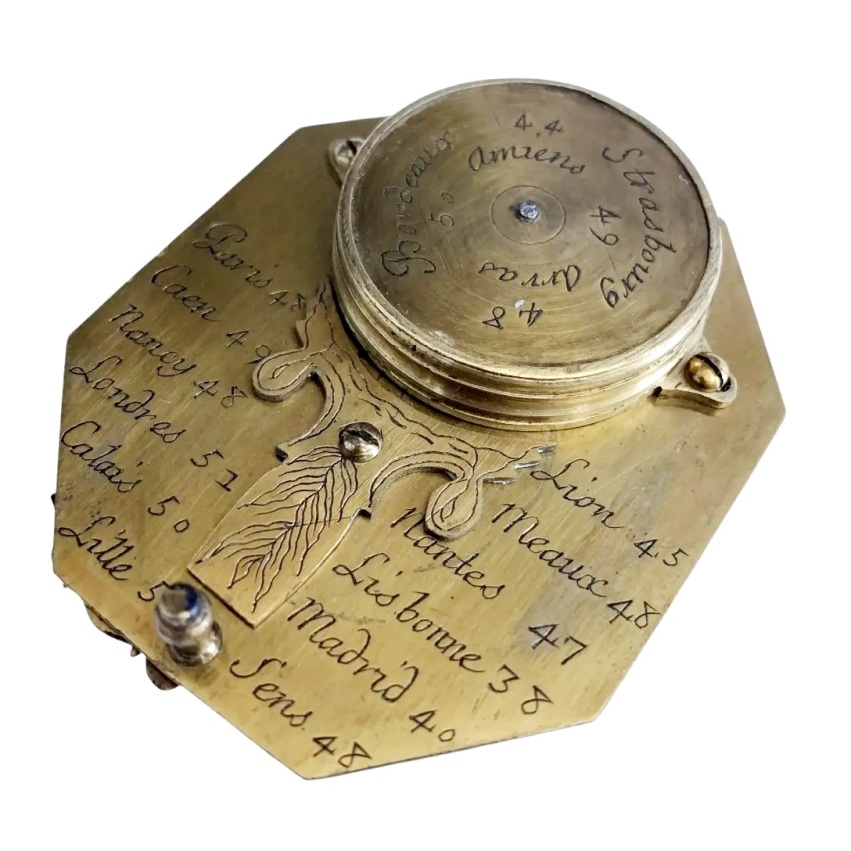 Bordeaux 44
Strasbourg 48
amiens 49
arras 50
Paris 48
Caen 49
Nancy 48
Londres 51
Calais 50
Lille 5
Lion 45
Meaux 48
Nantes 47
Lisbonne 38
Madrid 40
Sens 48